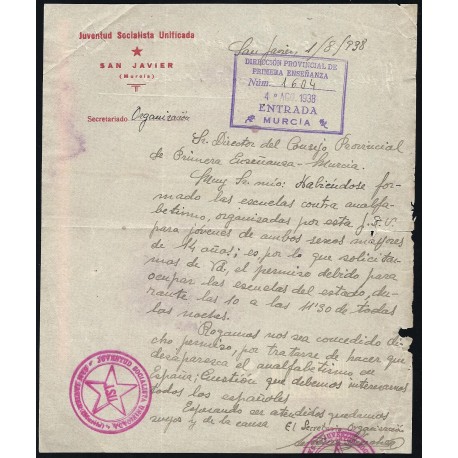 Juventud Socialista Unificada
SAN JAVIER
(Murcia)
San Javier, 1/8/938
DIRECCIÓN PROVINCIAL DE
PRIMERA ENSEÑANZA
Núm. 1604
4 AGO. 1938
ENTRADA
MURCIA
Secretariado: Organización
Sr. Director del Consejo Provincial
de Primera Enseñanza - Murcia.
Muy Sr. mío: Habiéndose for-
mado las escuelas contra analfa-
betismo, organizadas por esta J.S.U.
para jóvenes de ambos sexos mayores
de 14 años; es por lo que solicita-
mos de Vd, el permiso debido para
ocupar las escuelas del estado, du-
rante las 10 a las 11'30 de todas
las noches.
Rogamos nos sea concedido di-
cho permiso, por tratarse de hacer que
desaparezca el analfabetismo en
España; Cuestión que debemos interesarnos
todos los españoles
Esperando ser atendidos quedamos
suyos y de la causa
El Secretario Organización
JUVENTUD SOCIALISTA UNIFICADA
SAN JAVIER (Murcia)
JSU